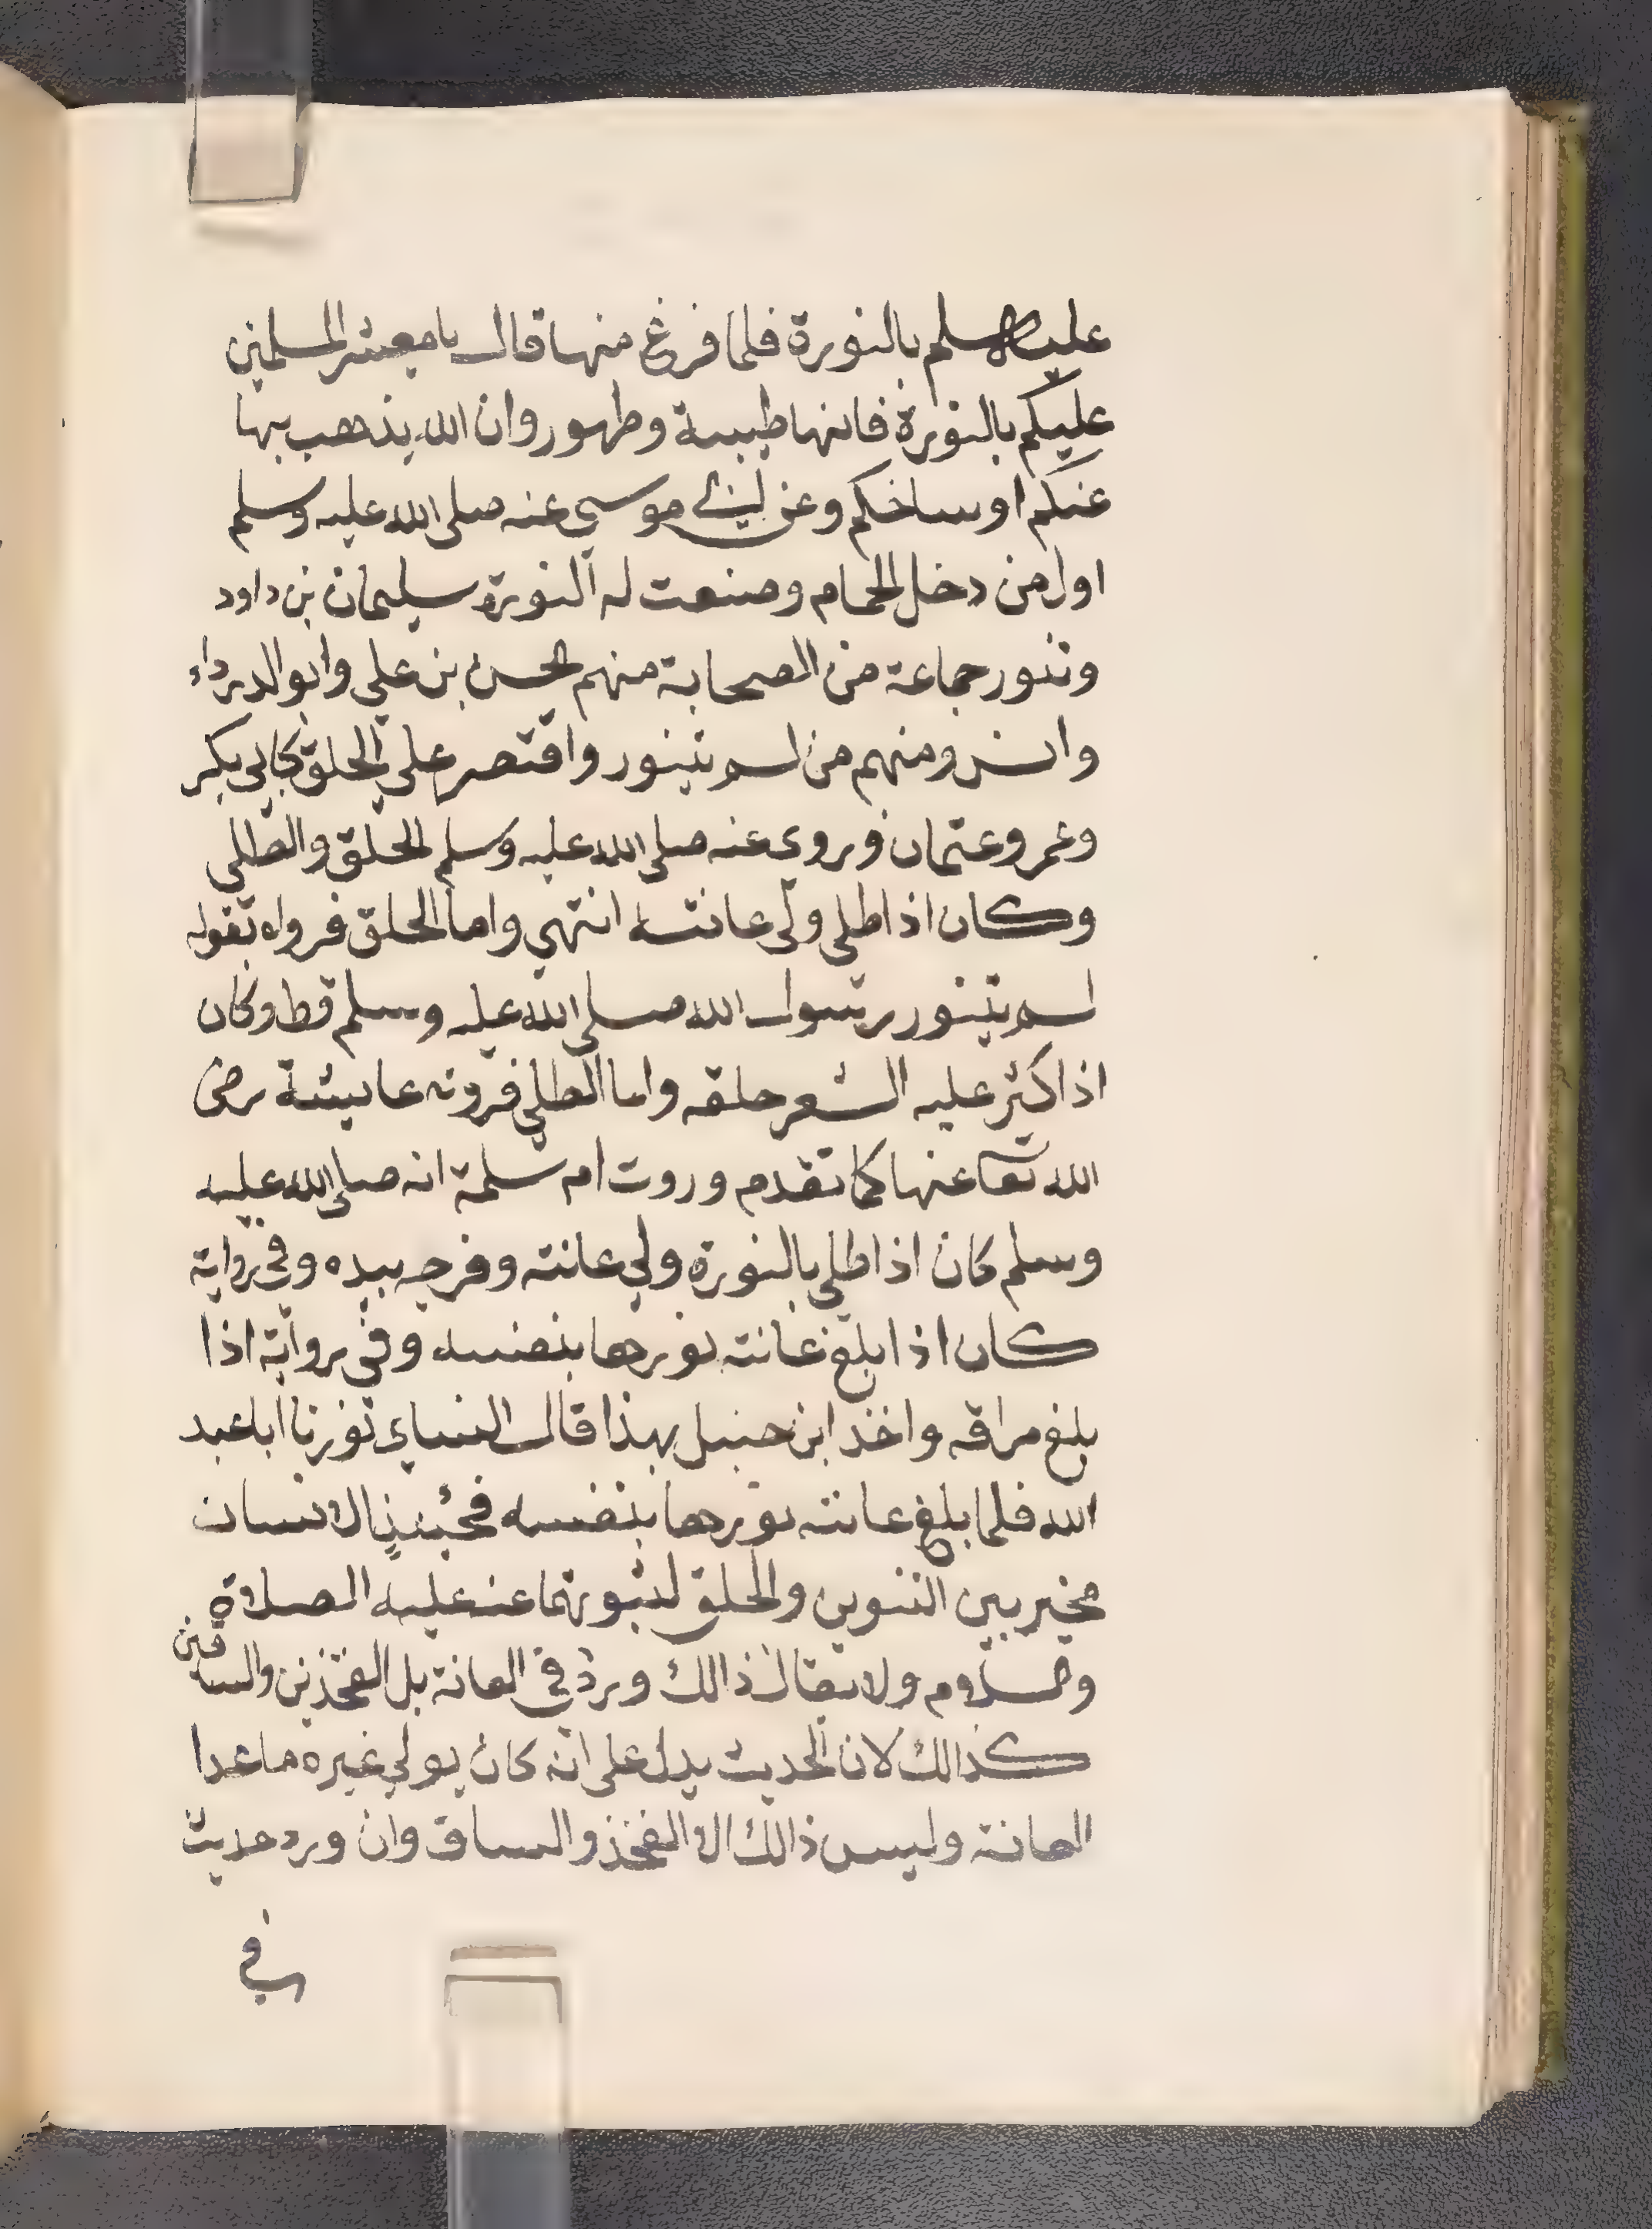 عليه وسلم بالنورة فلما فرغ منها قال يا معشر المسلمين
عليكم بالنورة فانها طيبة وطهور وان الله يذهب بها
عنكم اوساخكم وعن ابي موسى عنه صلى الله عليه وسلم
اول من دخل الحمام وصنعت له النورة سليمان بن داود
وتنور جماعة من الصحابة منهم الحسن بن علي وابو الدرداء
وانس ومنهم من لم يتنور واقتصر على الحلق كابي بكر
وعمر وعثمان وروي عنه صلى الله عليه وسلم الحلق والطلي
وكان اذا طلى ولى عانته انتهى واما الحلق فرواه بقوله
لم يتنور رسول الله صلى الله عليه وسلم قط وكان
اذا كثر عليه الشعر حلقه واما الطلي فروته عايشة رضى
الله تعا عنها كما تقدم وروت ام سلمة انه صلى الله عليه
وسلم كان اذا طلى بالنورة ولي عانته وفرجه بيده وفي رواية
كان اذا بلغ عانته نورها بنفسه وفي رواية اذا
بلغ مراقه واخذ ابن حنبل بهذا قال النساءي نورنا ابا عبد
الله فلما بلغ عانته نورها بنفسه فحينئذ الانسان
مخير بين التنوير والحلق لثبوتهما عنه عليه الصلاة
والسلام ولا يقال ذالك ورد في العانة بل الفخذين والساقين
كذالك لان الحديث يدل على انه كان يولي غيره ما عدا
العانة وليس ذالك الا الفخذ والساق وان ورد حديث
في